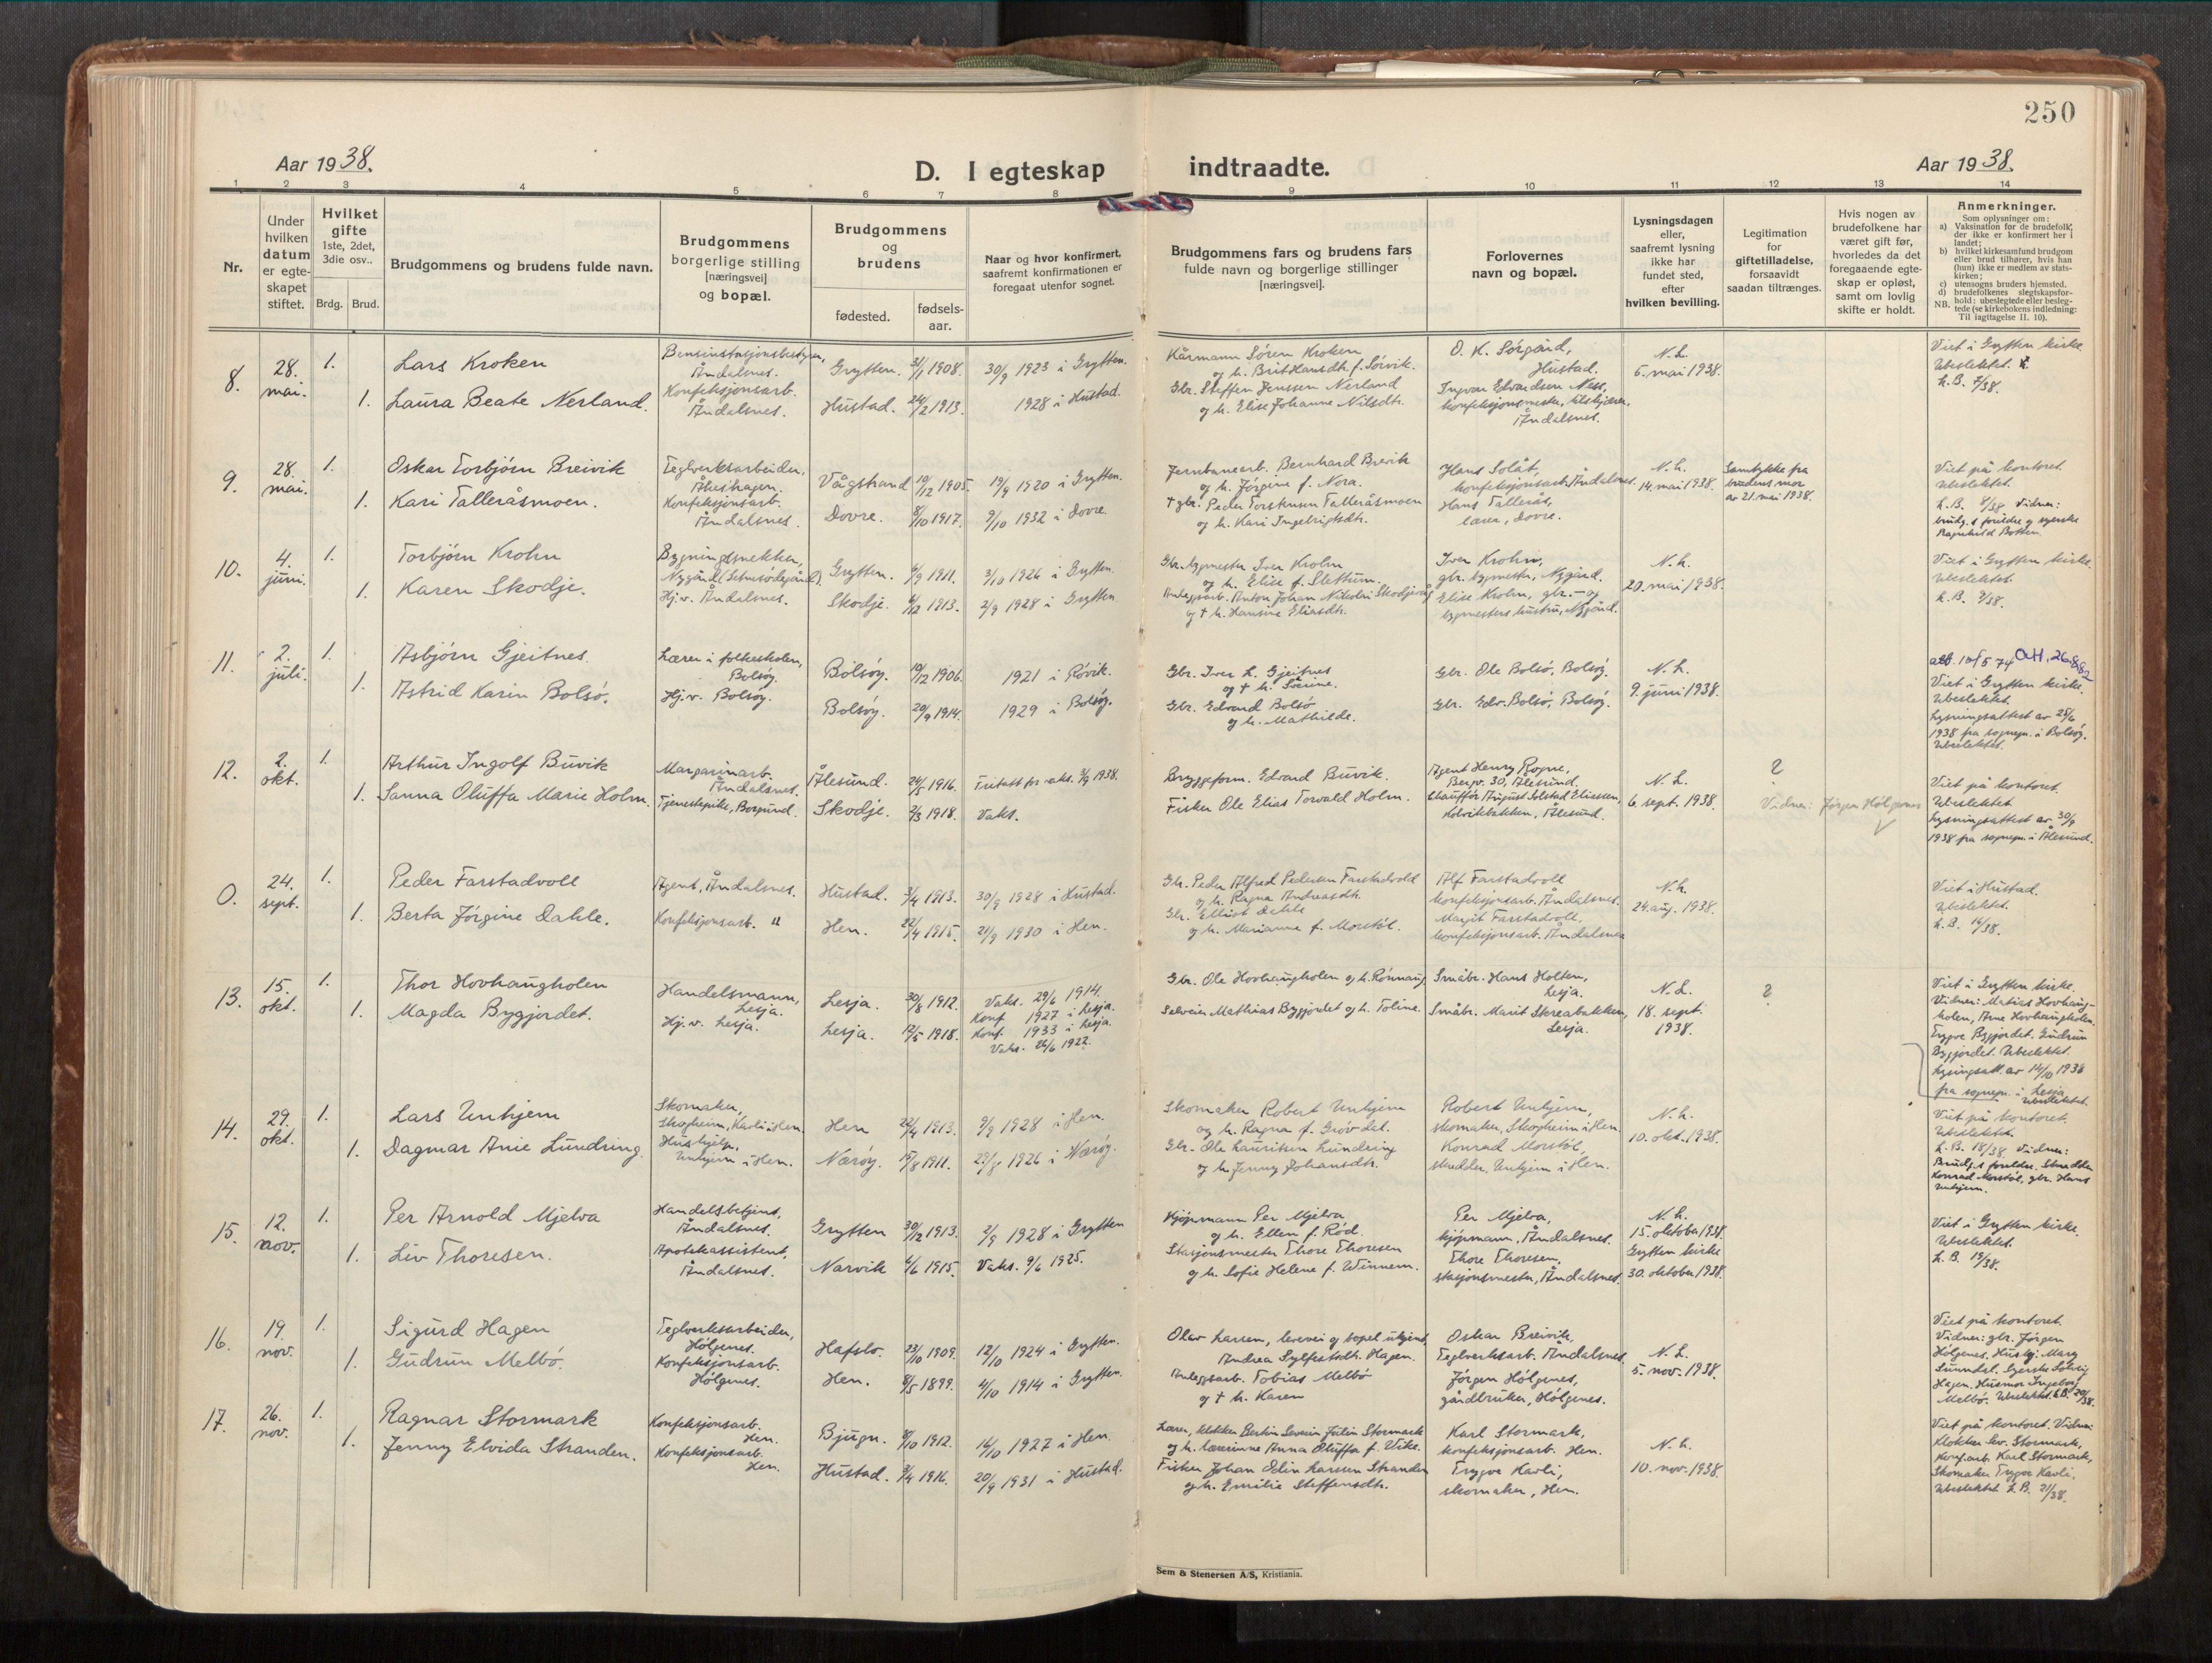 250
Aar 1938.
D. I egteskap indtraadte.
Aar 1938.
1 2 3 4 5 6 7 8 9 10 11 12 13 14
Nr.
Under hvilken datum er egteskapet stiftet.
Hvilket gifte 1ste, 2det, 3die osv..
Brdg. Brud.
Brudgommens og brudens fulde navn.
Brudgommens borgerlige stilling [næringsvei] og bopæl.
Brudgommens og brudens
fødested.
fødsels-aar.
Naar og hvor konfirmert, saafremt konfirmationen er foregaat utenfor sognet.
Brudgommens fars og brudens fars fulde navn og borgerlige stillinger [næringsvei].
Forlovernes navn og bopæl.
Lysningsdagen eller, saafremt lysning ikke har fundet sted, efter hvilken bevilling.
Legitimation for giftetilladelse, forsaavidt saadan tiltrænges.
Hvis nogen av brudefolkene har været gift før, hvorledes da det foregaaende egteskap er opløst, samt om lovlig skifte er holdt.
Anmerkninger.
Som oplysninger om:
a) Vaksination for de brudefolk, der ikke er konfirmert her i landet;
b) hvilket kirkesamfund brudgom eller brud tilhører, hvis han (hun) ikke er medlem av statskirken;
c) utensogns bruders hjemsted.
d) brudefolkenes slegtskapsforhold: ubeslegtede eller beslegtede (se kirkebokens indledning: Til iagttagelse II. 10).
NB.
8. 28. mai. 1. Lars Kroken
Bensinstasjonsbestyrer, Åndalsnes.
Grytten. 31/1 1908. 30/9 1923 i Grytten.
Kårmann Sören Kroken
og h. Brit Hansdtr. f. Sörvik.
O. K. Sörgård, Hustad.
N. L. 5. mai 1938.
Viet i Grytten kirke.
Ubeslektet.
L.B. 7/38.
1. Laura Beate Nerland.
Konfeksjonsarb. Åndalsnes.
Hustad. 24/2 1913. 1928 i Hustad.
Gbr. Steffen Jenssen Nerland
og h. Elise Johanne Nilsdtr.
Ingvar Edvardsen Ness, konfeksjonsmester, Åndalsnes.
9. 28. mai. 1. Oskar Torbjörn Breivik
Teglverksarbeider, Åkeshagen.
Vågstrand 19/12 1905. 19/9 1920 i Grytten.
Jernbanearb. Bernhard Breivik
og h. Jörgine f. Nora.
Hans Solåt, konfeksjonsarb. Åndalsnes.
N. L. 14. mai 1938.
Samtykke fra brudens mor av 21. mai 1938.
Viet på kontoret.
Ubeslektet.
L.B. 8/38 Vidner:
brudg.s foreldre og syerske
Ragnhild Botten.
1. Kari Talleråsmoen.
Konfeksjonsarb. Åndalsnes.
Dovre. 8/10 1917. 9/10 1932 i Dovre.
† gbr. Peder Torstensen Talleråsmoen
og h. Kari Ingebrigtsdtr.
Hans Tallerås, lærer, Dovre.
10. 4. juni. 1. Torbjörn Krohn
Bygningssnekker, Nygård
Grytten. 4/9 1911. 3/10 1926 i Grytten.
Gbr. bygmester Iver Krohn
og h. Elise f. Slettum.
Iver Krohn, gbr. bygmester, Nygård.
N. L. 20. mai 1938.
Viet i Grytten kirke.
Ubeslektet.
L.B. 9/38.
1. Karen Skodje.
Hj.v. Åndalsnes.
Skodje. 6/12 1913. 2/9 1928 i Grytten.
Anleggsarb. Anton Johan Nikolai Skodjevåg
og † h. Hansine Eliasdtr.
Elise Krohn, gbr.- og bygmesters hustru, Nygård.
11. 2. juli. 1. Asbjörn Gjeitnes.
Lærer i folkeskolen, Bolsöy.
Bolsöy. 19/12 1906. 1921 i Rövik.
Gbr. Iver L. Gjeitnes
og † h. Sörine.
Gbr. Ole Bolsö, Bolsöy.
N. L. 9. juni 1938.
att. 10/5 74 O.H. 26.8.82
Viet i Grytten kirke.
Ubeslektet.
Lysningsattest av 25/6
1938 fra sognepr. i Bolsöy.
Ubeslektet.
1. Astrid Karin Bolsö.
Hj.v. Bolsöy.
Bolsöy. 20/9 1914. 1929 i Bolsöy.
Gbr. Edvard Bolsö
og h. Mathilde.
Gbr. Edv. Bolsö, Bolsöy.
12. 2. okt. 1. Arthur Ingolf Buvik
Margarinarb. Åndalsnes.
Ålesund. 24/5 1916. Fritatt for vaks. 3/9 1938.
Bryggeform. Edvard Buvik.
Agent Henry Rogne, Bergv. 30, Ålesund.
N. L. 6. sept. 1938.
?
Vidner: Jörgen Hölgenes
Viet på kontoret.
Ubeslektet
Lysningsattest av 30/9
1938 fra sognepr. i Ålesund.
1. Sanna Oluffa Marie Holm.
Tjenestepike, Borgund.
Skodje. 2/3 1918. Vaks.
Fisker Ole Elias Torvald Holm.
Chaufför August Solstad Eliassen, Kolvikbakken, Ålesund.
0. 24. sept. 1. Peder Farstadvoll
Agent, Åndalsnes.
Hustad. 3/4 1913. 30/9 1928 i Hustad.
Gbr. Peder Alfred Pedersen Farstadvoll
og h. Ragna Andreasdtr.
Alf Farstadvoll konfeksjonsarb. Åndalsnes.
N. L. 24. aug. 1938.
Viet i Hustad.
Ubeslektet.
L.B. 14/38.
1. Berta Jörgine Dahle.
Konfeksjonsarb. "
Hen. 22/4 1915. 21/9 1930 i Hen.
Gbr. Elling Dahle
og h. Marianne f. Morstöl.
Margit Farstadvoll, konfeksjonsarb. Åndalsnes
13. 15. okt. 1. Thor Hovhaugholen
Handelsmann, Lesja.
Lesja. 30/8 1912. Vaks. 29/6 1914. Konf 1927 i Lesja.
Gbr. Ole Hovhaugholen og h. Rönnaug
Småbr. Hans Holten, Lesja.
N. L. 18. sept. 1938.
?
Viet i Grytten kirke.
Vidner: Matias Hovhaug-
holen, Arne Hovhaugholen.
Trygve Byggjordet. Gudrun
Byggjordet. Ubeslektet.
Lysningsatt. av 14/10 1938
fra sognepr. i Lesja.
Ubeslektet.
1. Magda Byggjordet.
Hj.v. Lesja.
Lesja. 12/5 1918. Konf. 1933 i Lesja. Vaks. 26/6 1922.
Selveier Mathias Byggjordet og h. Toline.
Småbr. Marit Skreabakken, Lesja.
14. 29. okt. 1. Lars Unhjem
Skomaker, Skogheim, Kavli i Hen
Hen 22/4 1913. 9/9 1928 i Hen.
Skomaker Robert Unhjem
og h. Ragna f. Grövdal.
Robert Unhjem, skomaker, Skogheim i Hen.
N. L. 10. okt. 1938.
Viet på kontoret.
Ubeslektet.
L.B. 18/38. Vidner:
Brudg.s foreldre. Skredder
Konrad Morstöl, gbr. Hans
Unhjem.
1. Dagmar Anie Lundring.
Hushjelp, Unhjem i Hen.
Næröy. 15/8 1911. 29/8 1926 i Næröy.
Gbr. Ole Lauritsen Lundring
og h. Jenny Johansdtr.
Konrad Morstöl, skredder, Unhjem i Hen.
15. 12. nov. 1. Per Arnold Mjelva
Handelsbetjent, Åndalsnes.
Grytten 30/12 1913. 2/9 1928 i Grytten
Kjöpmann Per Mjelva
og h. Ellen f. Röd.
Per Mjelva, kjöpmann, Åndalsnes.
N. L. 15. oktober 1938. Grytten kirke 30. oktober 1938.
Viet i Grytten kirke.
Ubeslektet.
L.B. 19/38.
1. Liv Thoresen.
Apotekassistent, Åndalsnes.
Narvik 6/6 1915. Vaks. 9/6 1925.
Stasjonsmester Thore Thoresen
og h. Sofie Helene f. Winnem.
Thore Thoresen, stasjonsmester, Åndalsnes.
16. 19. nov. 1. Sigurd Hagen
Teglverksarbeider, Hölgenes.
Hafslo. 23/10 1909. 12/10 1924 i Grytten.
Olav Larsen, levevei og bopel ukjent,
Andrea Sylfestdtr. Hagen.
Oskar Breivik, Teglverksarb. Åndalsnes.
N. L. 5. nov. 1938.
Viet på kontoret.
Vidner: gbr. Jörgen
Hölgenes. Hushj. Mary
Sunndal. Syerske Solveig
Hagen. Husmor Ingeborg
Melbö. Ubeslektet. L.B. 20/38.
1. Gudrun Melbö.
Konfeksjonsarb. Hölgenes.
Hen. 8/5 1899. 4/10 1914 i Grytten.
Anleggsarb. Tobias Melbö
og † h. Karen
Jörgen Hölgenes, gårdbruker, Hölgenes.
17. 26. nov. 1. Ragnar Stormark
Konfeksjonsarb. Hen.
Bjugn. 8/10 1912. 16/10 1927 i Hen.
Lærer, klokker Bertin Severin Julin Stormark
og h. lærerinne Anna Oluffa f. Vike.
Karl Stormark, konfeksjonsarb. Hen.
N. L. 10. nov. 1938.
Viet på kontoret. Vidner:
Klokker Sev. Stormark,
Konf.arb. Karl Stormark,
Skomaker Trygve Kavli,
Ubeslektet L.B. 21/38.
1. Jenny Elvida Stranden.
Konfeksjonsarb. Hen.
Hustad. 3/4 1916. 20/9 1931 i Hustad.
Fisker Johan Odin Larssen Stranden
og h. Emilie Steffensdtr.
Trygve Kavli, skomaker, Hen.
Sem & Stenersen A/S, Kristiania.